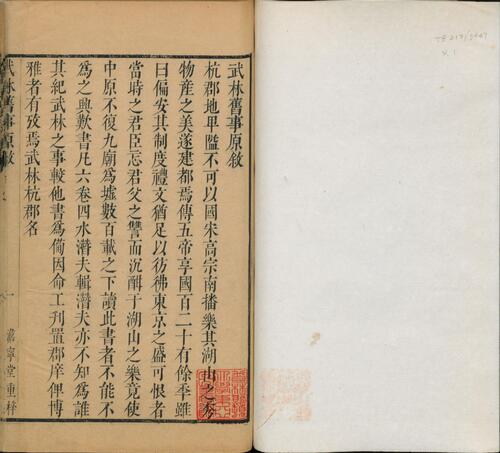 武林舊事原敘
杭郡地卑隘不可以國宋高宗南播樂其湖山之秀
物產之美遂建都焉傳五帝享國百二十有餘年雖
曰偏安其制度禮文猶足以彷彿東京之盛可恨者
當時之君臣忘君父之讐而沉酣于湖山之樂竟使
中原不復九廟為墟數百載之下讀此書者不能不
為之興歎書凡六卷四水潛夫輯潛夫亦不知為誰
其紀武林之事較他書為偹因命工刊置郡庠俾博
雅者有攷焉武林杭郡名
武林舊事原敘
一
嘉寧堂重梓